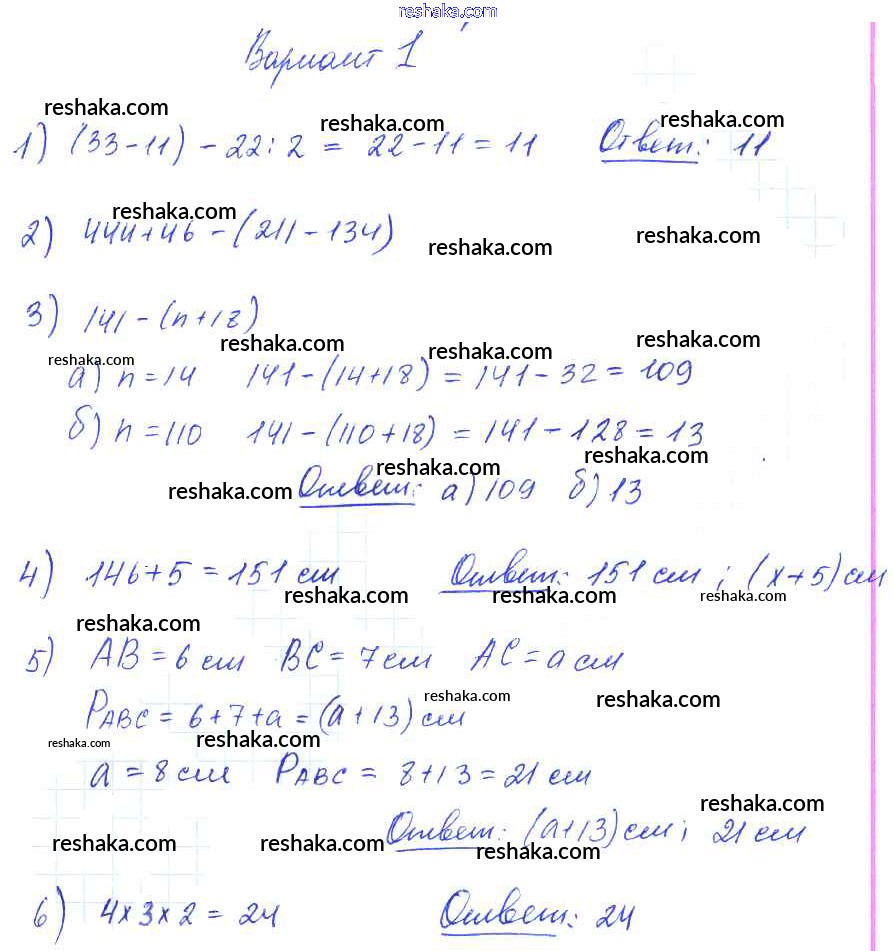 reshaka.com
Вариант 1
reshaka.com reshaka.com reshaka.com
1) (33-11) - 22:2 = 22-11 = 11 Ответ: 11
reshaka.com reshaka.com reshaka.com
2) 444+46-(211-134)
3) 141-(n+18)
reshaka.com reshaka.com reshaka.com reshaka.com
а) n=14 141-(14+18) = 141-32 = 109
б) n=110 141-(110+18) = 141-128 = 13
reshaka.com reshaka.com reshaka.com
Ответ: а) 109 б) 13
4) 146+5 = 151 см Ответ: 151 см; (x+5) см
reshaka.com reshaka.com reshaka.com
reshaka.com
5) AB = 6 см BC = 7 см AC = a см
reshaka.com reshaka.com
PABC = 6+7+a = (a+13) см
reshaka.com reshaka.com
a = 8 см PABC = 8+13 = 21 см
reshaka.com
Ответ: (a+13) см; 21 см
reshaka.com reshaka.com reshaka.com
6) 4×3×2 = 24 Ответ: 24